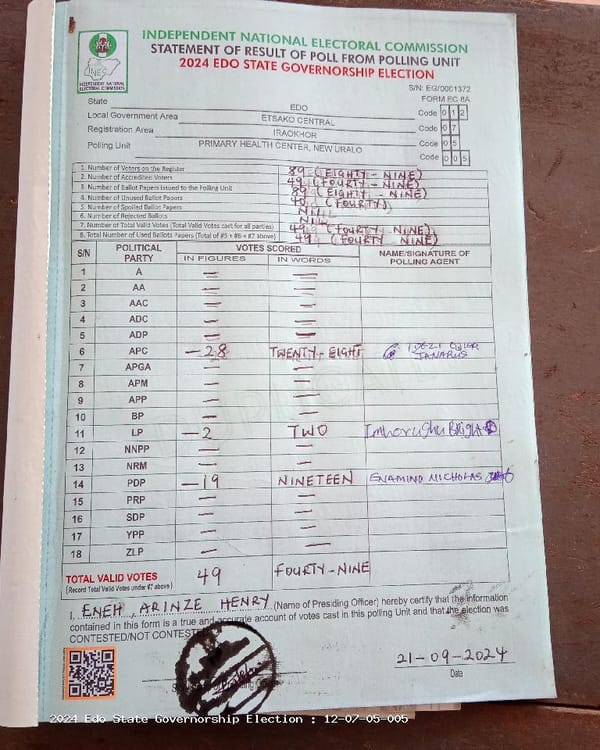 INDEPENDENT NATIONAL ELECTORAL COMMISSION
STATEMENT OF RESULT OF POLL FROM POLLING UNIT
2024 EDO STATE GOVERNORSHIP ELECTION
INEC
INDEPENDENT NATIONAL ELECTORAL COMMISSION
S/N: EG/0001372
FORM EC 8A
State EDO Code 012
Local Government Area ETSAKO CENTRAL Code 07
Registration Area IRAOKHOR Code 05
Polling Unit PRIMARY HEALTH CENTER, NEW URALO Code 005
1. Number of Voters on the Register 89 (EIGHTY-NINE)
2. Number of Accredited Voters 49 (FOURTY-NINE)
3. Number of Ballot Papers Issued to the Polling Unit 89 (EIGHTY-NINE)
4. Number of Unused Ballot Papers 40 (FOURTY)
5. Number of Spoiled Ballot Papers NIL
6. Number of Rejected Ballots NIL
7. Number of Total Valid Votes (Total Valid Votes cast for all parties) 49 (FOURTY-NINE)
8. Total Number of Used Ballots Papers (Total of #5 + #6 + #7 above) 49 (FOURTY NINE)
S/N POLITICAL PARTY VOTES SCORED NAME/SIGNATURE OF POLLING AGENT
IN FIGURES IN WORDS
1 A — —
2 AA — —
3 AAC — —
4 ADC — —
5 ADP — —
6 APC –28 TWENTY-EIGHT
7 APGA — —
8 APM — —
9 APP — —
10 BP — —
11 LP –2 TWO
12 NNPP — —
13 NRM — —
14 PDP –19 NINETEEN NICHOLAS
15 PRP — —
16 SDP — —
17 YPP — —
18 ZLP — —
TOTAL VALID VOTES 49 FOURTY-NINE
(Record Total Valid Votes under #7 above)
I, ENEH, ARINZE HENRY (Name of Presiding Officer) hereby certify that the information
contained in this form is a true and accurate account of votes cast in this polling Unit and that the election was
CONTESTED/NOT CONTESTED
21-09-2024
Date
2024 Edo State Governorship Election : 12-07-05-005